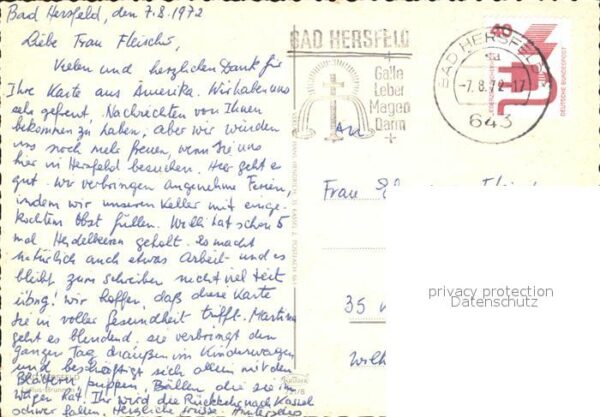 Bad Hersfeld, den 7.8.1972
Liebe Frau Fleischer,
Vielen und herzlichen Dank für
Ihre Karte aus Amerika. Wir haben uns
sehr gefreut, Nachrichten von Ihnen
bekommen zu haben, aber wir würden
uns noch mehr freuen, wenn Sie uns
hier in Hersfeld besuchen. Hier geht es
gut. Wir verbringen angenehme Ferien,
indem wir unseren Keller mit einge-
kochtem Obst füllen. Willi hat schon 5
mal Heidelbeeren geholt. Es macht
natürlich auch etwas Arbeit und es
bleibt zum schreiben nicht viel Zeit
übrig! Wir hoffen, daß diese Karte
Sie in voller Gesundheit trifft. Martina
geht es blendend, sie verbringt den
ganzen Tag draußen im Kinderwagen
und beschäftigt sich allein mit den
Blättern, puppen, Bällen die sie im
Wagen hat. Ihr wird die Rückkehr nach Kassel
schwer fallen. Herzliche Grüße
BAD HERSFELD
Galle
Leber
Magen
Darm
BAD HERSFELD
-7.8.72-17
643
40
DEUTSCHE BUNDESPOST
An
Frau
35
privacy protection
Datenschutz